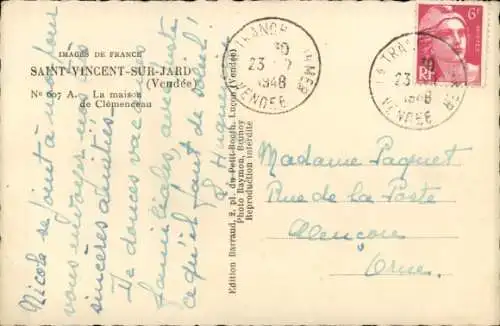 IMAGES DE FRANCE
SAINT-VINCENT-SUR-JARD
(Vendée)
Nº 607 A. La maison
de Clémenceau
Nicole se joint à moi pour
vous envoyer nos
sincères amitiés.
De douces vacances
familiales, avec juste
ce qu'il faut de soleil!
Edition Barraud, 2, pl. du Petit-Booth, Luçon (Vendée)
Photo Raymon,
Reproduction interdite
LA TRANCHE MER
23
1948
VENDÉE
LA TRA MER
23
1948
VENDÉE
6F
RF
Madame Paquet
Rue de la Poste
Alençon
Orne.